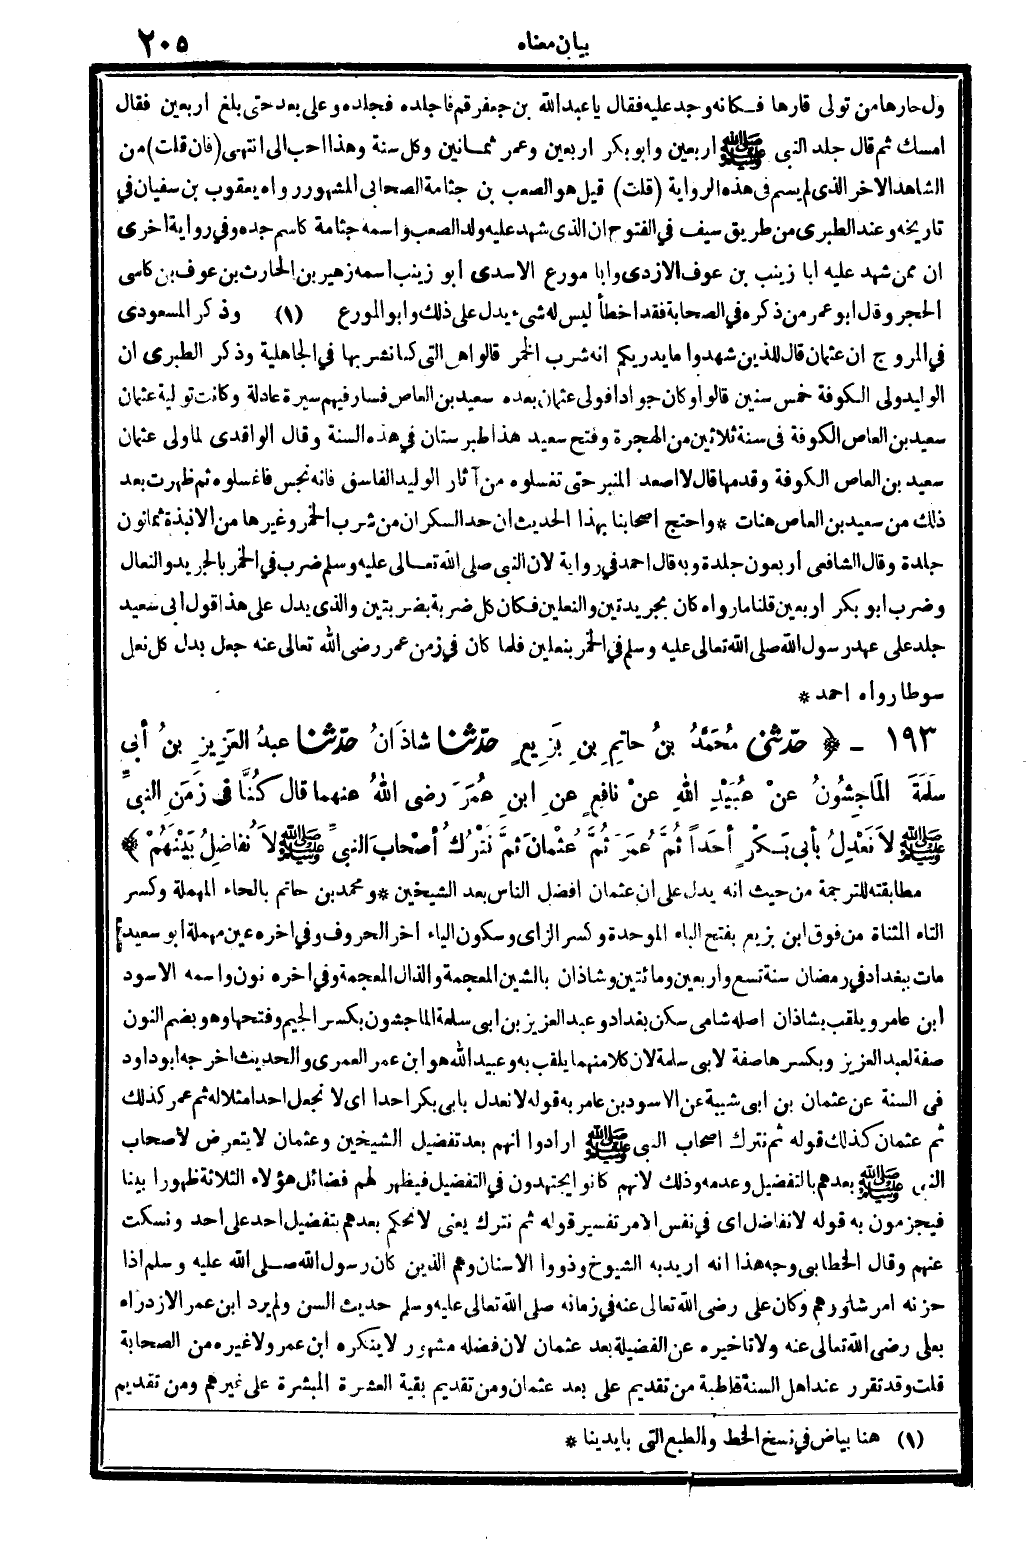 بيان معناه ٢٠٥
ول حارها من تولى قارها فكانه وجد عليه فقال يا عبد الله بن جعفر قم فاجلده فجلده وعلى يعد حتى بلغ اربعين فقال
امسك ثم قال جلد النبي ﷺ اربعين وابو بكر اربعين وعمر ثمانين وكل سنة وهذا احب الى انتهى (فان قلت) من
الشاهد الاخر الذى لم يسم فى هذه الرواية (قلت) قيل هو الصعب بن جثامة الصحابى المشهور رواه يعقوب بن سفيان في
تاريخه وعند الطبرى من طريق سيف في الفتوح ان الذى شهد عليه ولد الصعب واسمه جثامة كاسم جده وفي رواية اخرى
ان ممن شهد عليه ابا زينب بن عوف الازدى وابا مورع الاسدى ابو زينب اسمه زهير بن الحارث بن عوف بن كاسى
الحجر وقال ابو عمر من ذكره في الصحابة فقد اخطأ ليس له شىء يدل على ذلك وابو المورع (١) وذكر المسعودى
في المروج ان عثمان قال للذين شهدوا ما يدريكم انه شرب الخمر قالوا هى التى كنا نشربها في الجاهلية وذكر الطبرى ان
الوليد ولى الكوفة خمس سنين قالوا وكان جوادا فولى عثمان بعده سعيد بن العاص فسار فيهم سيرة عادلة وكانت تولية عثمان
سعيد بن العاص الكوفة فى سنة ثلاثين من الهجرة وفتح سعيد هذا طبرستان في هذه السنة وقال الواقدى لما ولى عثمان
سعيد بن العاص الكوفة وقدمها قال لا اصعد المنبر حتى تغسلوه من آثار الوليد الفاسق فانه نجس فاغسلوه ثم ظهرت بعد
ذلك من سعيد بن العاص هنات * واحتج اصحابنا بهذا الحديث ان حد السكران من شرب الخمر وغيرها من الانبذة ثمانون
جلدة وقال الشافعى أربعون جلدة وبه قال احمد في رواية لان النبى صلى الله تعالى عليه وسلم ضرب في الخمر بالجريد والنعال
وضرب ابو بكر اربعين قلنا ما رواه كان بجريدتين والنعلين فكان كل ضربة بضربتين والذى يدل على هذا قول أبى سعيد
جلد على عهد رسول الله صلى الله تعالى عليه وسلم في الخمر بنعلين فلما كان في زمن عمر رضى الله تعالى عنه جعل بدل كل نعل
سوطا رواه احمد *
١٩٣ - ﴿ حدّثني مُحَمَّدُ بنُ حاتِمِ بنِ بَزِيعٍ حدّثنا شاذَانُ حدّثنا عبدُ العَزِيزِ بنُ أبي
سلَمَةَ المَاجِشُونُ عنْ عُبَيْدِ اللهِ عنْ نافِعٍ عنِ ابنِ عُمَرَ رضى اللهُ عنهما قال كُنَّا في زَمَنِ النبىِّ
ﷺ لاَ نَعْدِلُ بأبى بَكْرٍ أحَداً ثُمَّ عُمَرَ ثُمَّ عُثْمانَ ثمَّ نَتْرُكُ أصْحابَ النبىِّ ﷺ لاَ نُفاضِلُ بَيْنَهُمْ ﴾
مطابقته للترجمة من حيث انه يدل على ان عثمان افضل الناس بعد الشيخين * ومحمد بن حاتم بالحاء المهملة وكسر
التاء المثناة من فوق ابن بزيع بفتح الباء الموحدة وكسر الزاى وسكون الياء اخر الحروف وفي اخره عين مهملة ابو سعيد
مات ببغداد في رمضان سنة تسع واربعين ومائتين وشاذان بالشين المعجمة والذال المعجمة وفي اخره نون واسمه الاسود
ابن عامر ويلقب بشاذان اصله شامى سكن بغداد وعبد العزيز بن ابى سلمة الماجشون بكسر الجيم وفتحها وهو بضم النون
صفة لعبد العزيز وبكسرها صفة لابى سلمة لان كلا منهما يلقب به وعبيد الله هو ابن عمر العمرى والحديث اخرجه ابو داود
فى السنة عن عثمان بن ابى شيبة عن الاسود بن عامر به قوله لا نعدل بابى بكر احدا اى لا نجعل احدا مثلا له ثم عمر كذلك
ثم عثمان كذلك قوله ثم نترك اصحاب النبى ﷺ ارادوا انهم بعد تفضيل الشيخين وعثمان لا يتعرض لأصحاب
النبى ﷺ بعدهم بالتفضيل وعدمه وذلك لانهم كانوا يجتهدون في التفضيل فيظهر لهم فضائل هؤلاء الثلاثة ظهورا بينا
فيجزمون به قوله لا نفاضل اى في نفس الامر تفسير قوله ثم نترك يعنى لا نحكم بعدهم بتفضيل احد على احد ونسكت
عنهم وقال الخطابى وجه هذا انه اريد به الشيوخ وذووا الاسنان وهم الذين كان رسول الله صلى الله عليه وسلم اذا
حزنه امر شاورهم وكان على رضى الله تعالى عنه في زمانه صلى الله تعالى عليه وسلم حديث السن ولم يرد ابن عمر الازدراء
بعلى رضى الله تعالى عنه ولا تاخيره عن الفضيلة بعد عثمان لان فضله مشهور لا ينكره ابن عمر ولا غيره من الصحابة
قلت وقد تقرر عند اهل السنة قاطبة من تقديم على بعد عثمان ومن تقديم بقية العشرة المبشرة على غيرهم ومن تقديم
(١) هنا بياض في نسخ الخط والطبع التى بايدينا *